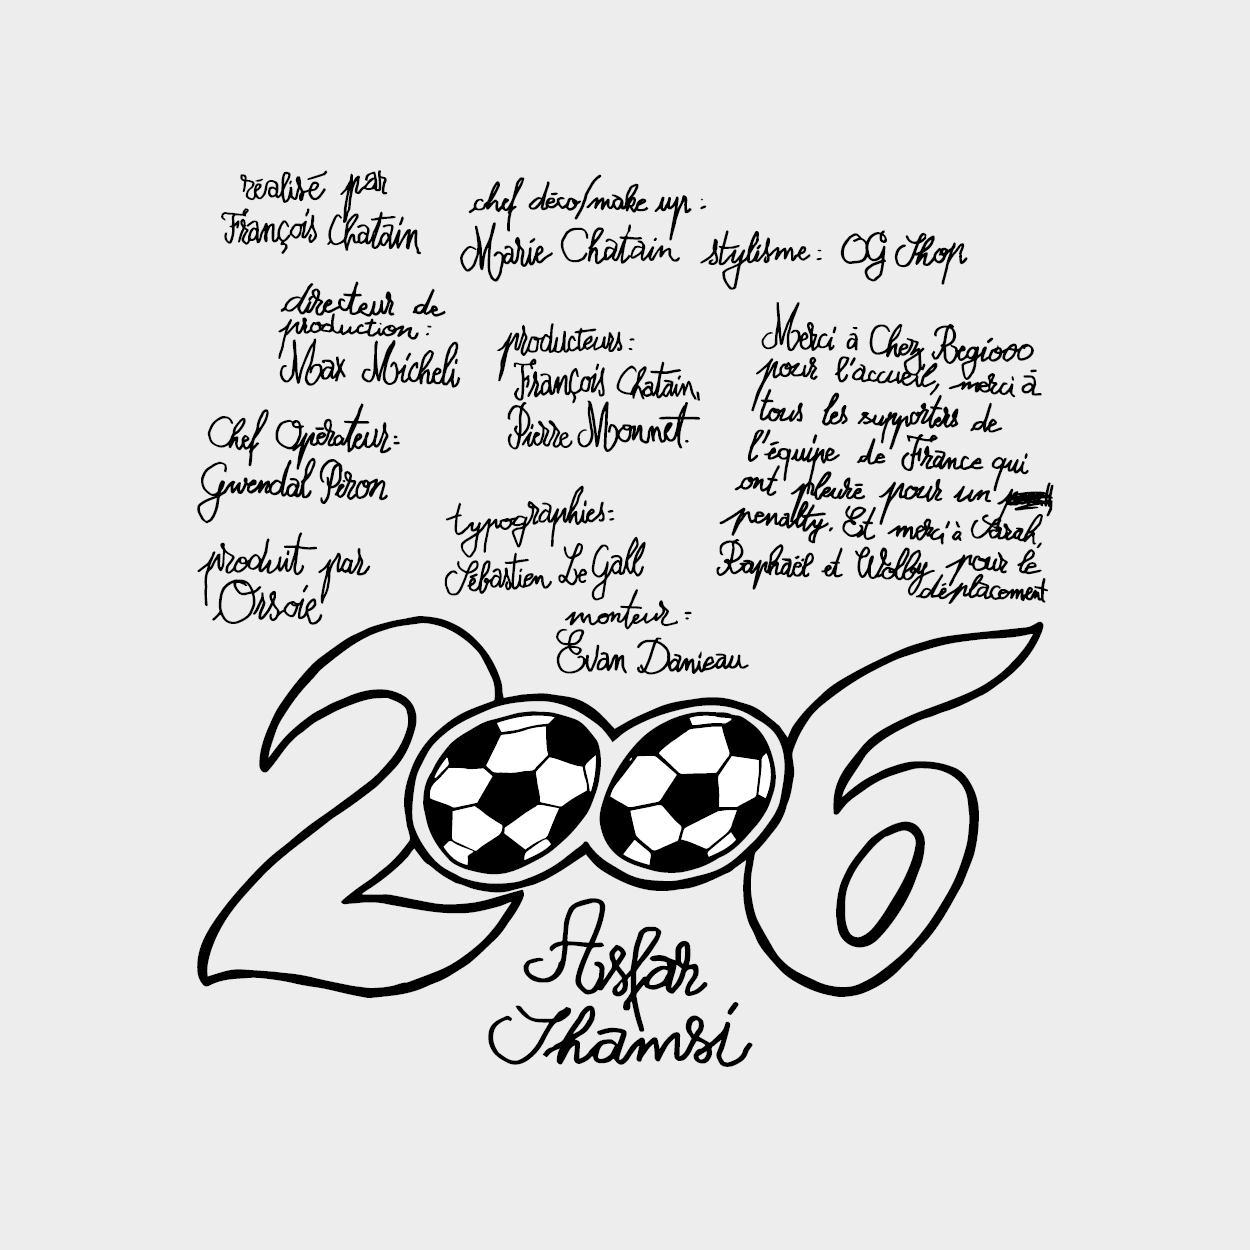 réalisé par
François Chatain
chef déco/make up :
Marie Chatain
stylisme : OG Shop
directeur de
production :
Max Micheli
producteurs :
François Chatain,
Pierre Monnet.
Merci à Chez Regiooo
pour l'accueil, merci à
tous les supporters de
l'équipe de France qui
ont pleuré pour un
penalty. Et merci à Sarah,
Raphaël et Wolby pour le
déplacement
Chef Opérateur :
Gwendal Piron
typographies :
Sébastien Le Gall
produit par
Orsoie
monteur :
Evan Danieau
2006
Asfar
Shamsi